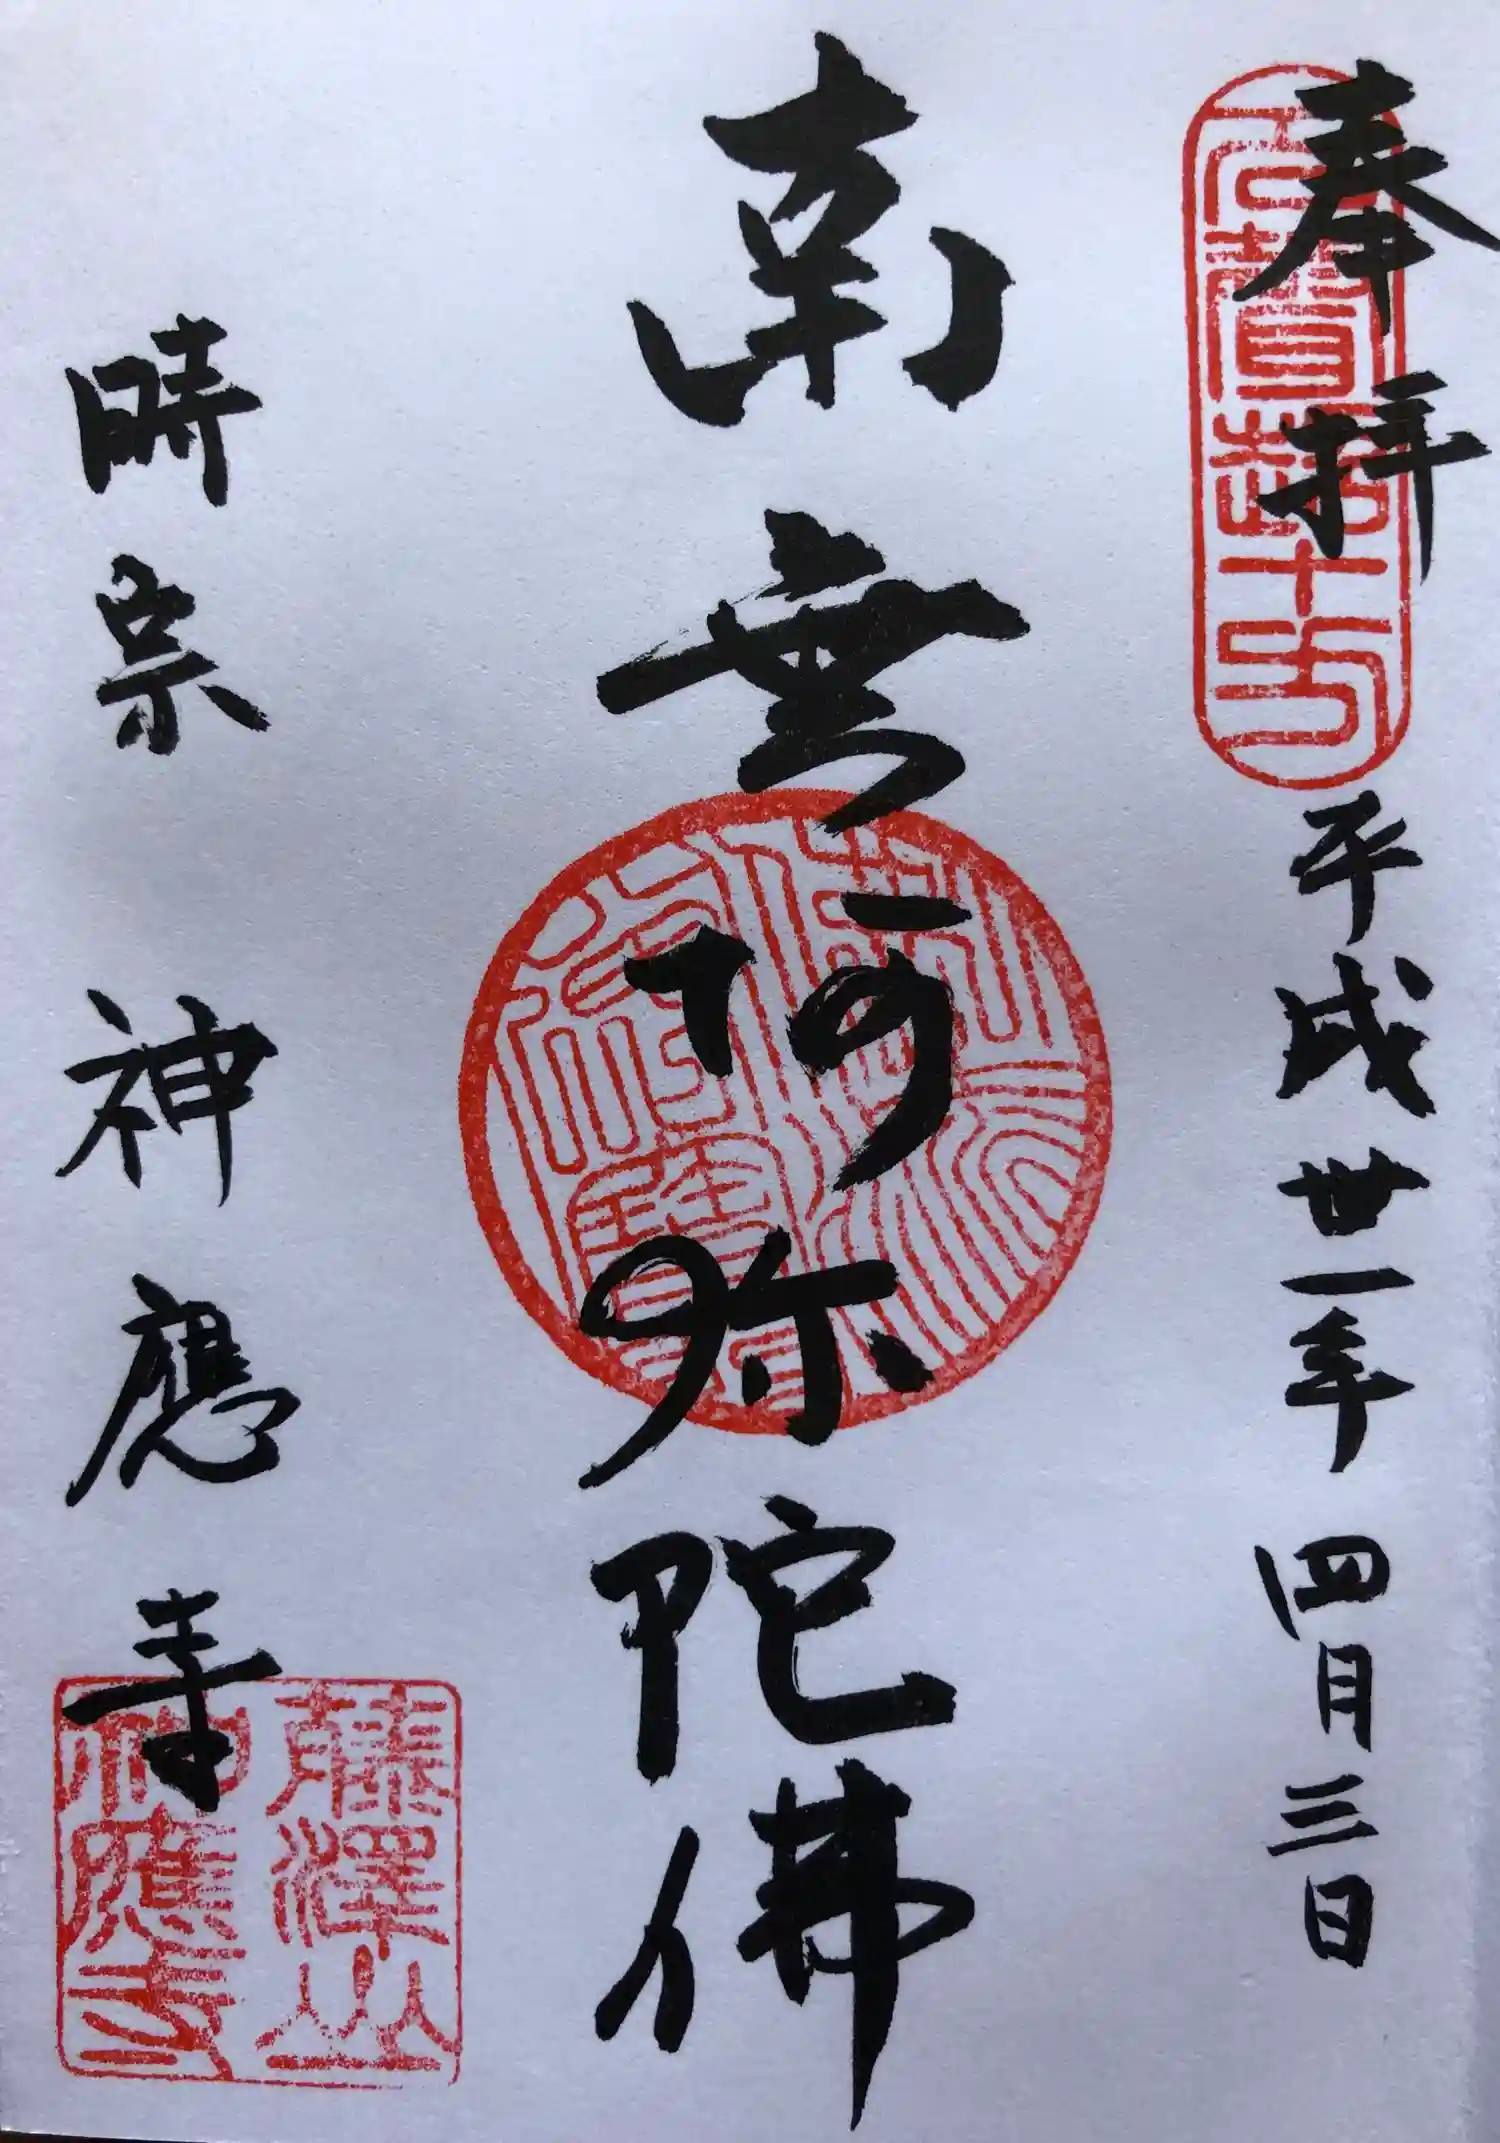 奉拝
平成卅一年 四月三日
南無阿弥陀佛
時宗 神應寺
藤澤山
神應寺